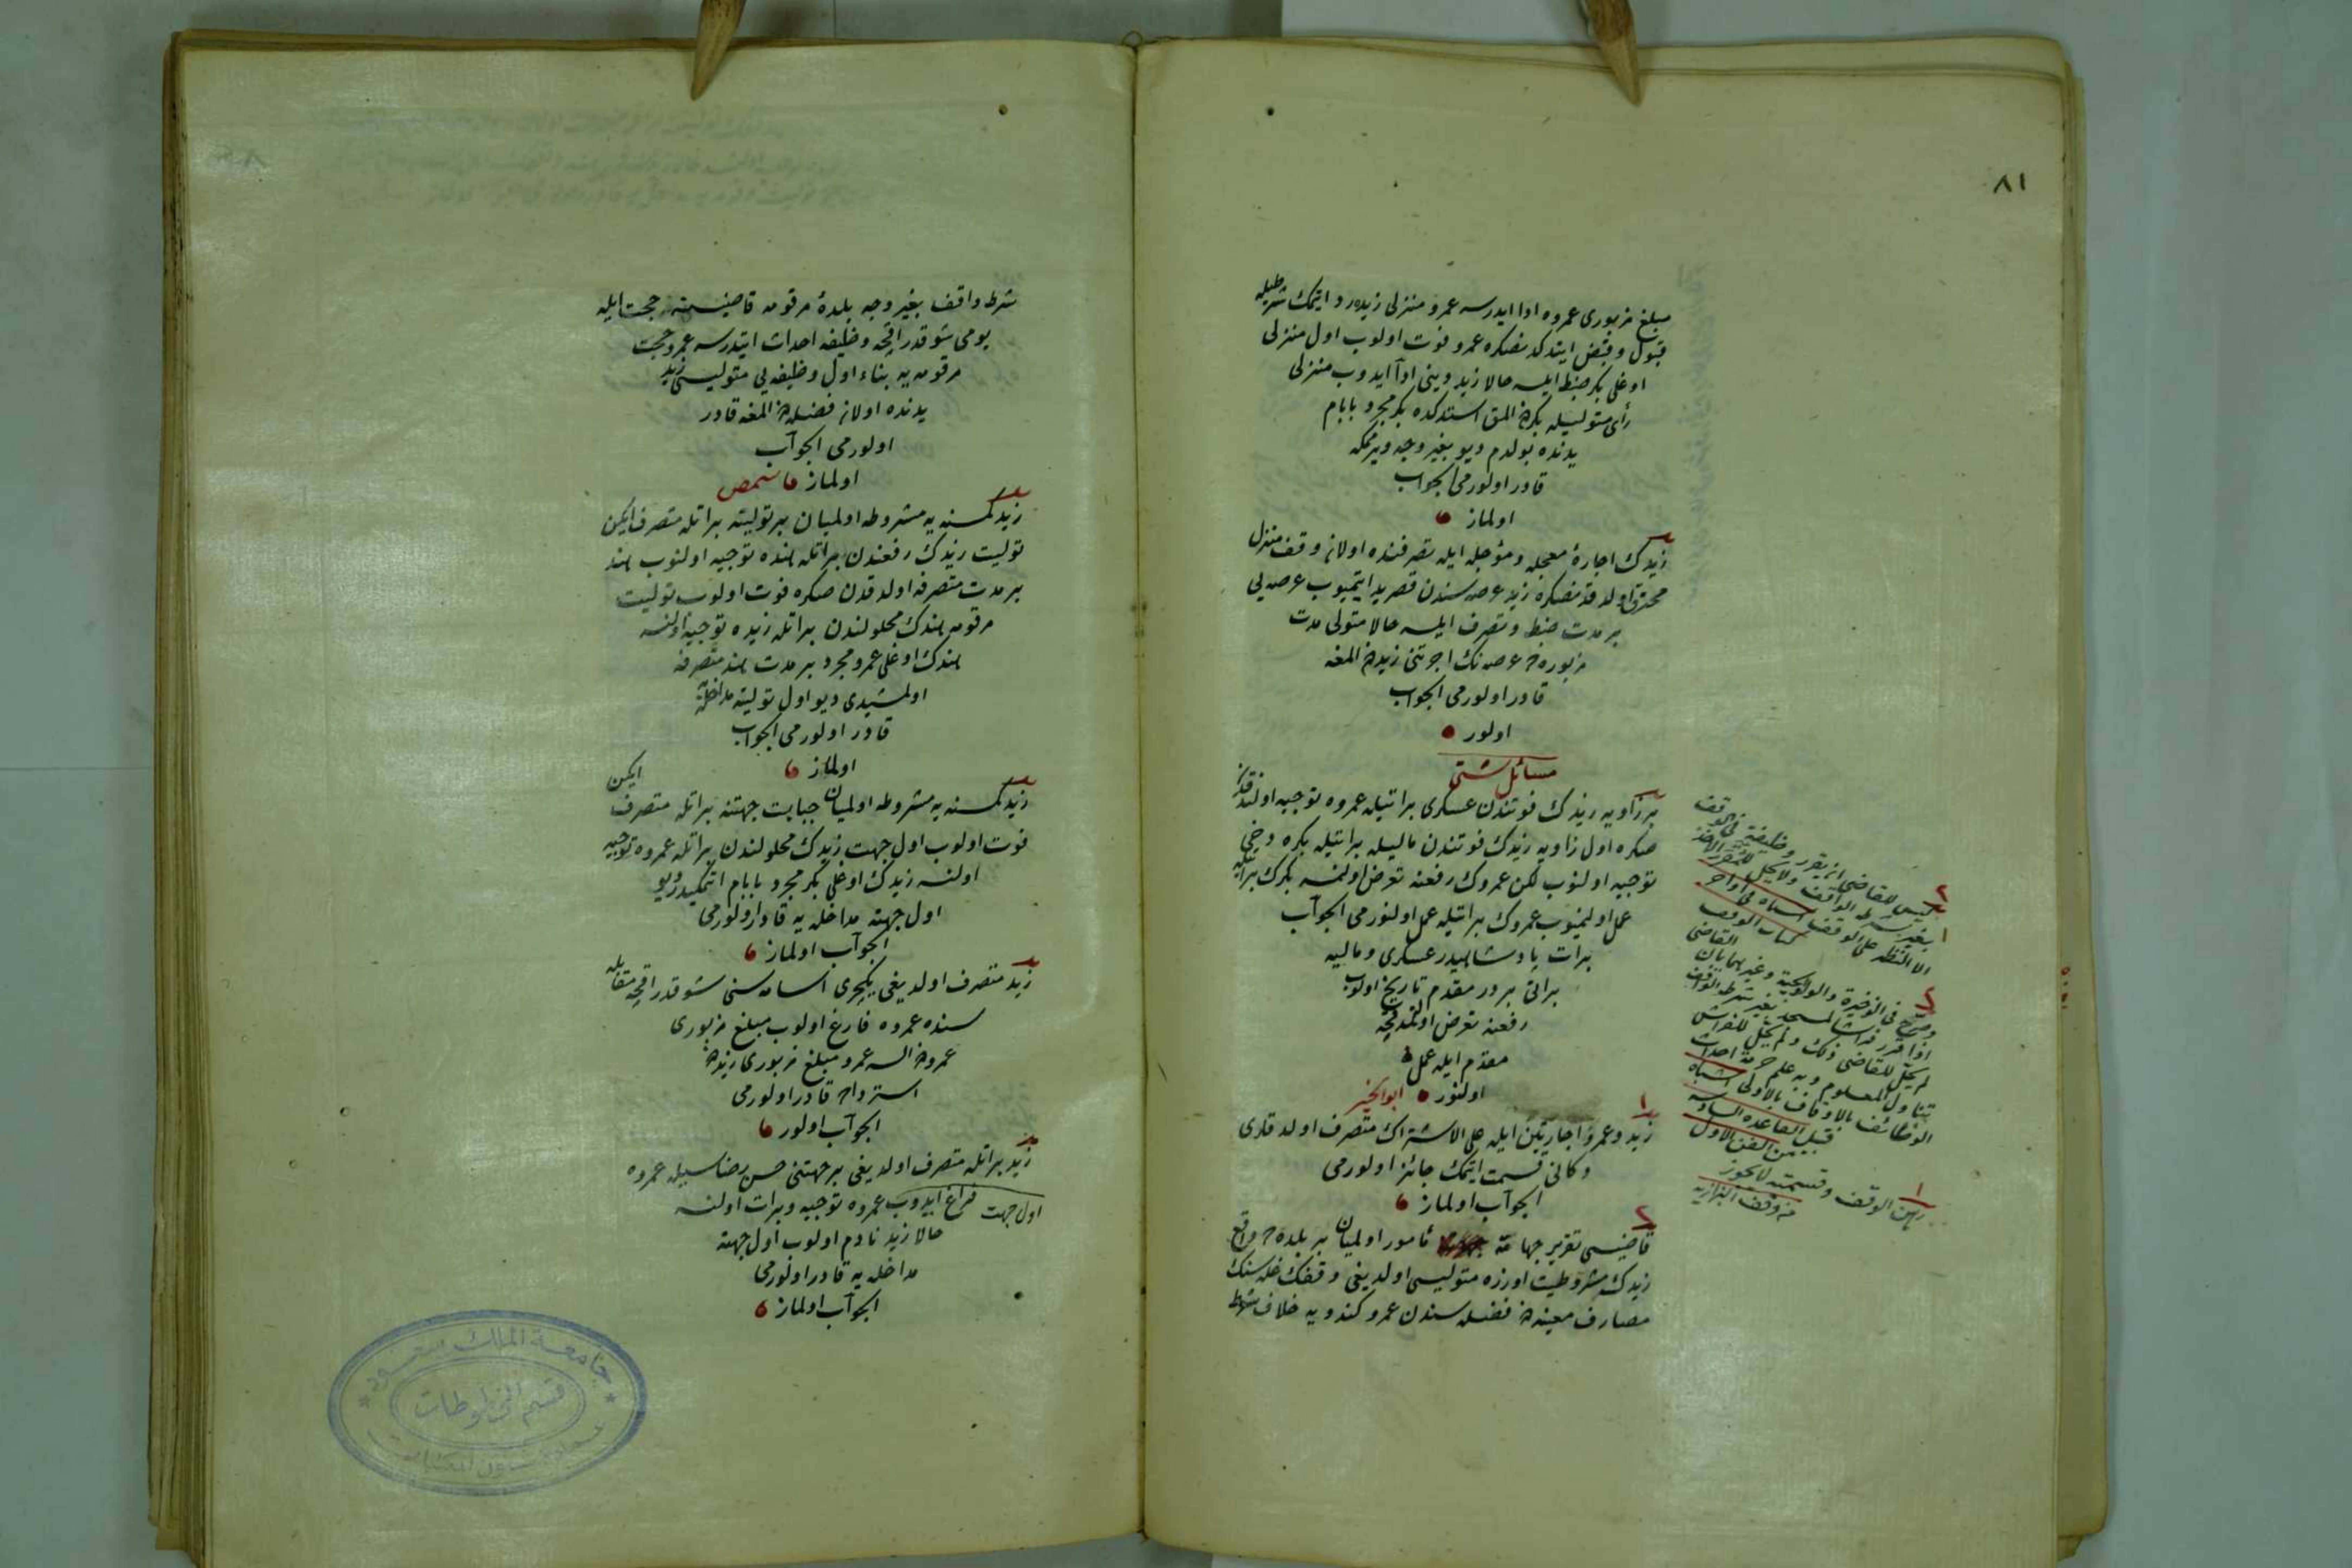 ٨١
مبلغ مزبوری عمروه ادا ایدرسه عمرو منزلی زیده رد ایتمك شرطیله
قبول وقبض ایتدكدنصكره عمرو فوت اولوب اول منزلی
اوغلی بكر ضبط ایلسه حالا زید دینی ادا ایدوب منزلی
رأی متولیله بكردن المق استدكده بكر مجرد بابام
یدنده بولدم دیو بغیر وجه ویرممكه
قادر اولورمی الجواب
اولماز
زیدك اجارهٔ معجله ومؤجله ایله تصرفنده اولان وقف منزل
محترق اولدقدنصكره زید عرصه سندن قصر ید ایتمیوب عرصه یی
بر مدت ضبط وتصرف ایلسه حالا متولی مدت
مزبوره ده عرصه نك اجرتنی زیددن المغه
قادر اولورمی الجواب
اولور
مسائل شتی
بر زاویه زیدك فوتندن عسكری براتیله عمروه توجیه اولندقدن
صكره اول زاویه زیدك فوتندن مالیه براتیله بكره دخی
توجیه اولنوب لكن عمروك رفعنه تعرض اولنمسه بكرك براتیله
عمل اولنمیوب عمروك براتیله عمل اولنورمی الجواب
برات پادشاهیدر عسكری ومالیه
براتی بردر مقدم تاریخ اولوب
رفعنه تعرض اولنمدقجه
مقدم ایله عمل
اولنور ابو الخیر
زید وعمرو اجارتین ایله علی الاشتراك متصرف اولدقلری
دكانی قسمت ایتمك جائز اولورمی
الجواب اولماز
قاضیسی تقریر جهاته مأمور اولمیان بر بلده ده واقع
زیدك مشروطیت اوزره متولیسی اولدیغی وقفك غله سنك
مصارف معینه دن فضله سندن عمرو كندویه خلاف شرط
لیس للقاضی ان یقرر وظیفة فی الوقف
بغیر شرط الواقف ولا یحل للمقرر الاخذ
الا النظر علی الوقف اشباه فی اواخر
كتاب الوقف
وصرح فی الذخیرة والولوالجیة وغیرهما بان القاضی
اذا قرر فراشا للمسجد بغیر شرط الواقف
لم یحل للقاضی ذلك ولم یحل للفراش
تناول المعلوم وبه علم حرمة احداث
الوظائف بالاوقاف بالاولی اشباه
قبیل القاعده السادسه
من الفن الاول
رهن الوقف وقسمته لا یجوز
من وقف البزازیه
شرط واقف بغیر وجه بلدهٔ مرقومه قاضیسنه حجت ایله
یومی شوقدر اقچه وظیفه احداث ایتدرسه عمرو حجت
مرقومه یه بناء اول وظیفه یی متولیسی زید
یدنده اولان فضله دن المغه قادر
اولورمی الجواب
اولماز
زید كمسنه یه مشروطه اولمیان بر تولیته براتله متصرف ایكن
تولیت زیدك رفعندن براتله هنده توجیه اولنوب هند
بر مدت متصرفه اولدقدن صكره فوت اولوب تولیت
مرقومه هندك محلولندن براتله زیده توجیه اولنسه
هندك اوغلی عمرو مجرد بر مدت هند متصرفه
اولمشیدی دیو اول تولیته مداخله یه
قادر اولورمی الجواب
اولماز
زید كمسنه یه مشروطه اولمیان جبایت جهتنه براتله متصرف ایكن
فوت اولوب اول جهت زیدك محلولندن براتله عمروه توجیه
اولنسه زیدك اوغلی بكر مجرد بابام ایدی دیو
اول جهته مداخله یه قادر اولورمی
الجواب اولماز
زید متصرف اولدیغی یكیچری اسامه سنی شوقدر اقچه مقابله
سنده عمروه فارغ اولوب مبلغ مزبوری
عمرودن السه عمرو مبلغ مزبوری زیددن
استرداده قادر اولورمی
الجواب اولور
زید براتله متصرف اولدیغی بر جهتنی حسن رضاسیله عمروه
فراغ ایدوب اول جهت عمروه توجیه وبرات اولنسه
حالا زید نادم اولوب اول جهته
مداخله یه قادر اولورمی
الجواب اولماز
جامعة الملك سعود
قسم المخطوطات
عمادة شؤون المكتبات